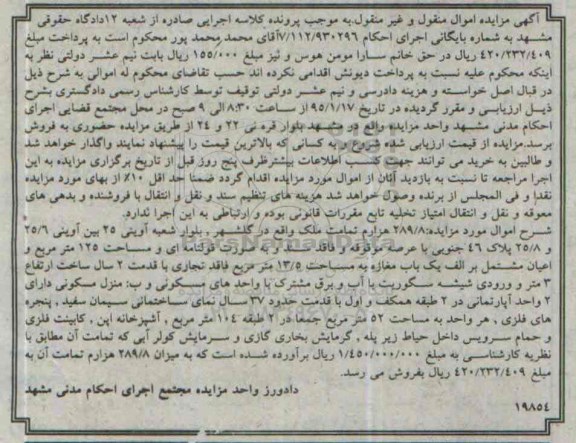 آگهی مزایده اموال منقول و غیر منقول.به موجب پرونده کلاسه اجرایی صادره از شعبه ۱۲دادگاه حقوقی
مشهد به شماره بایگانی اجرای احکام ۷/۱۱۲/۹۳۰۲۹۶آقای محمد محمد پور محکوم است به پرداخت مبلغ
۴۲۰/۲۳۲/۴۰۹ ریال در حق خانم سارا مومن هوس و نیز مبلغ ۱۵۵/۰۰۰ ریال بابت نیم عشر دولتی نظر به
اینکه محکوم علیه نسبت به پرداخت دیونش اقدامی نکرده اند حسب تقاضای محکوم له اموالی به شرح ذیل
در قبال اصل خواسته و هزینه دادرسی و نیم عشر دولتی توقیف توسط کارشناس رسمی دادگستری بشرح
ذیل ارزیابی و مقرر گردیده در تاریخ ۹۵/۱/۱۷ از ساعت ۸:۳۰ الی ۹ صبح در محل مجتمع قضایی اجرای
احکام مدنی مشهد واحد مزایده واقع در مشهد بلوار قره نی ۲۲ و ۲۴ از طریق مزایده حضوری به فروش
برسد.مزایده از قیمت ارزیابی شده شروع و به کسانی که بالاترین قیمت را پیشنهاد نمایند واگذار خواهد شد
و طالبین به خرید می توانند جهت کسب اطلاعات بیشترظرف پنج روز قبل از تاریخ برگزاری مزایده به این
اجرا مراجعه تا نسبت به بازدید آنان از اموال مورد مزایده اقدام گردد ضمنا حد اقل ۱۰٪ از بهای مورد مزایده
نقدا و فی المجلس از برنده وصول خواهد شد هزینه های تنظیم سند و نقل و انتقال با فروشنده و بدهی های
معوقه و نقل و انتقال امتیاز تخلیه تابع مقررات قانونی بوده و ارتباطی به این اجرا ندارد.
شرح اموال مورد مزایده:۲۸۹/۸ هزارم تمامت ملک واقع در گلشهر , بلوار شعبه آوینی ۲۵ بین آوینی ۲۵/۶
و ۲۵/۸ پلاک ۴۶ جنوبی با عرصه موقوفه و فاقد سند و به صورت قولنامه ای و مساحت ۱۲۵ متر مربع و
اعیان مشتمل بر الف یک باب مغازه به مساحت ۱۳/۵ متر مربع فاقد تجاری با قدمت ۲ سال ساخت ارتفاع
۳ متر و ورودی شیشه سکوریت با آب و برق مشترک با واحد های مسکونی و ب: منزل مسکونی دارای
۲ واحد آپارتمانی در ۲ طبقه همکف و اول با قدمت حدود ۳۷ سال نمای ساختمانی سیمان سفید , پنجره
های فلزی , هر واحد به مساحت ۵۲ متر مربع جمعا در ۲ طبقه ۱۰۴ متر مربع , آشپزخانه اپن , کابینت فلزی
و حمام سرویس داخل حیاط زیر پله , گرمایش بخاری گازی و سرمایش کولر آبی که تمامت آن مطابق با
نظریه کارشناسی به مبلغ ۱/۴۵۰/۰۰۰/۰۰۰ ریال برآورده شده است که به میزان ۲۸۹/۸ هزارم تمامت آن به
مبلغ ۴۲۰/۲۳۲/۴۰۹ ریال بفروش می رسد.
دادورز واحد مزایده مجتمع اجرای احکام مدنی مشهد
۱۹۸۵٤